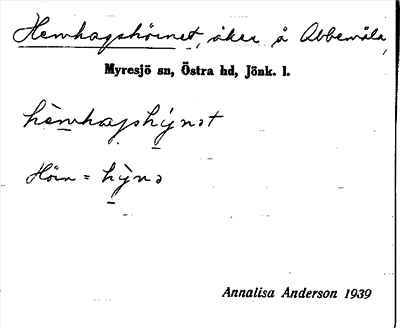 Hemhagshörnet, åker å Abbemåla,
Myresjö sn, Östra hd, Jönk. l.
hèmhagshýnət
Hörn = hỳnə
Annalisa Anderson 1939